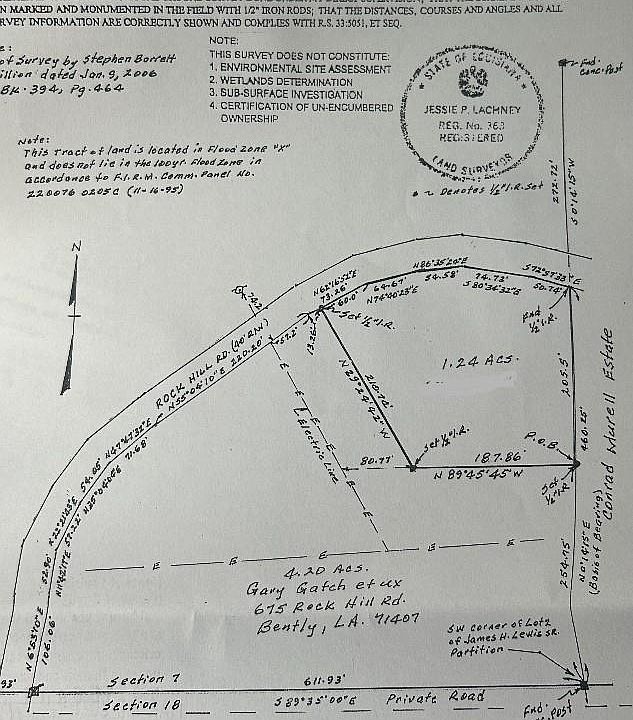 N MARKED AND MONUMENTED IN THE FIELD WITH 1/2" IRON RODS; THAT THE DISTANCES, COURSES AND ANGLES AND ALL
RVEY INFORMATION ARE CORRECTLY SHOWN AND COMPLIES WITH R.S. 33:5051, ET SEQ.
e:
of Survey by Stephen Barrett
illion dated Jan. 9, 2006
Bk. 394, Pg. 464
NOTE:
THIS SURVEY DOES NOT CONSTITUTE:
1. ENVIRONMENTAL SITE ASSESSMENT
2. WETLANDS DETERMINATION
3. SUB-SURFACE INVESTIGATION
4. CERTIFICATION OF UN-ENCUMBERED
OWNERSHIP
STATE OF LOUISIANA
JESSIE P. LACHNEY
REG. No. 363
REGISTERED
LAND SURVEYOR
Fnd.
Conc. Post
Note:
This Tract of land is located in Flood Zone "X"
and does not lie in the 100yr. Flood Zone in
accordance to F.I.R.M. Comm. Panel No.
220076 0205C (11-16-95)
~ Denotes 1/2" I.R. Set
272.72'
S 0°14'15" W
N
N62°16'52"E
73.26'
60.0'
64.67'
N74°40'23"E
N86°35'20"E
54.58'
74.73'
S 80°34'32"E
S72°57'33"E
50.74'
24.2
57.2'
13.26'
Set 1/2" I.R.
Fnd
1/2" I.R.
ROCK HILL RD. (40' R/W)
N55°04'10"E 220.20'
1.24 Acs.
205.5'
460.25'
Conrad Murell Estate
N 29°24'42" W
210.72'
Electric Line
E
E
E
E
E
Set 1/2" I.R.
P.O.B.
80.77'
187.86'
N 89°45'45" W
Set
1/2" I.R.
54.06' N47°47'33"E
71.68'
N22°21'43"E
52.90'
N11°42'17"E 57.22'
N6°53'10"E
106.06'
254.75'
N0°14'15"E
(Basis of Bearing)
E
E
E
E
E
4.20 Acs.
Gary Gatch et ux
675 Rock Hill Rd.
Bently, LA. 71407
SW corner of Lot 2
of James H. Lewis SR.
Partition
93'
Section 7
611.93'
Section 18
S 89°35'00"E
Private Road
Fnd.
Post